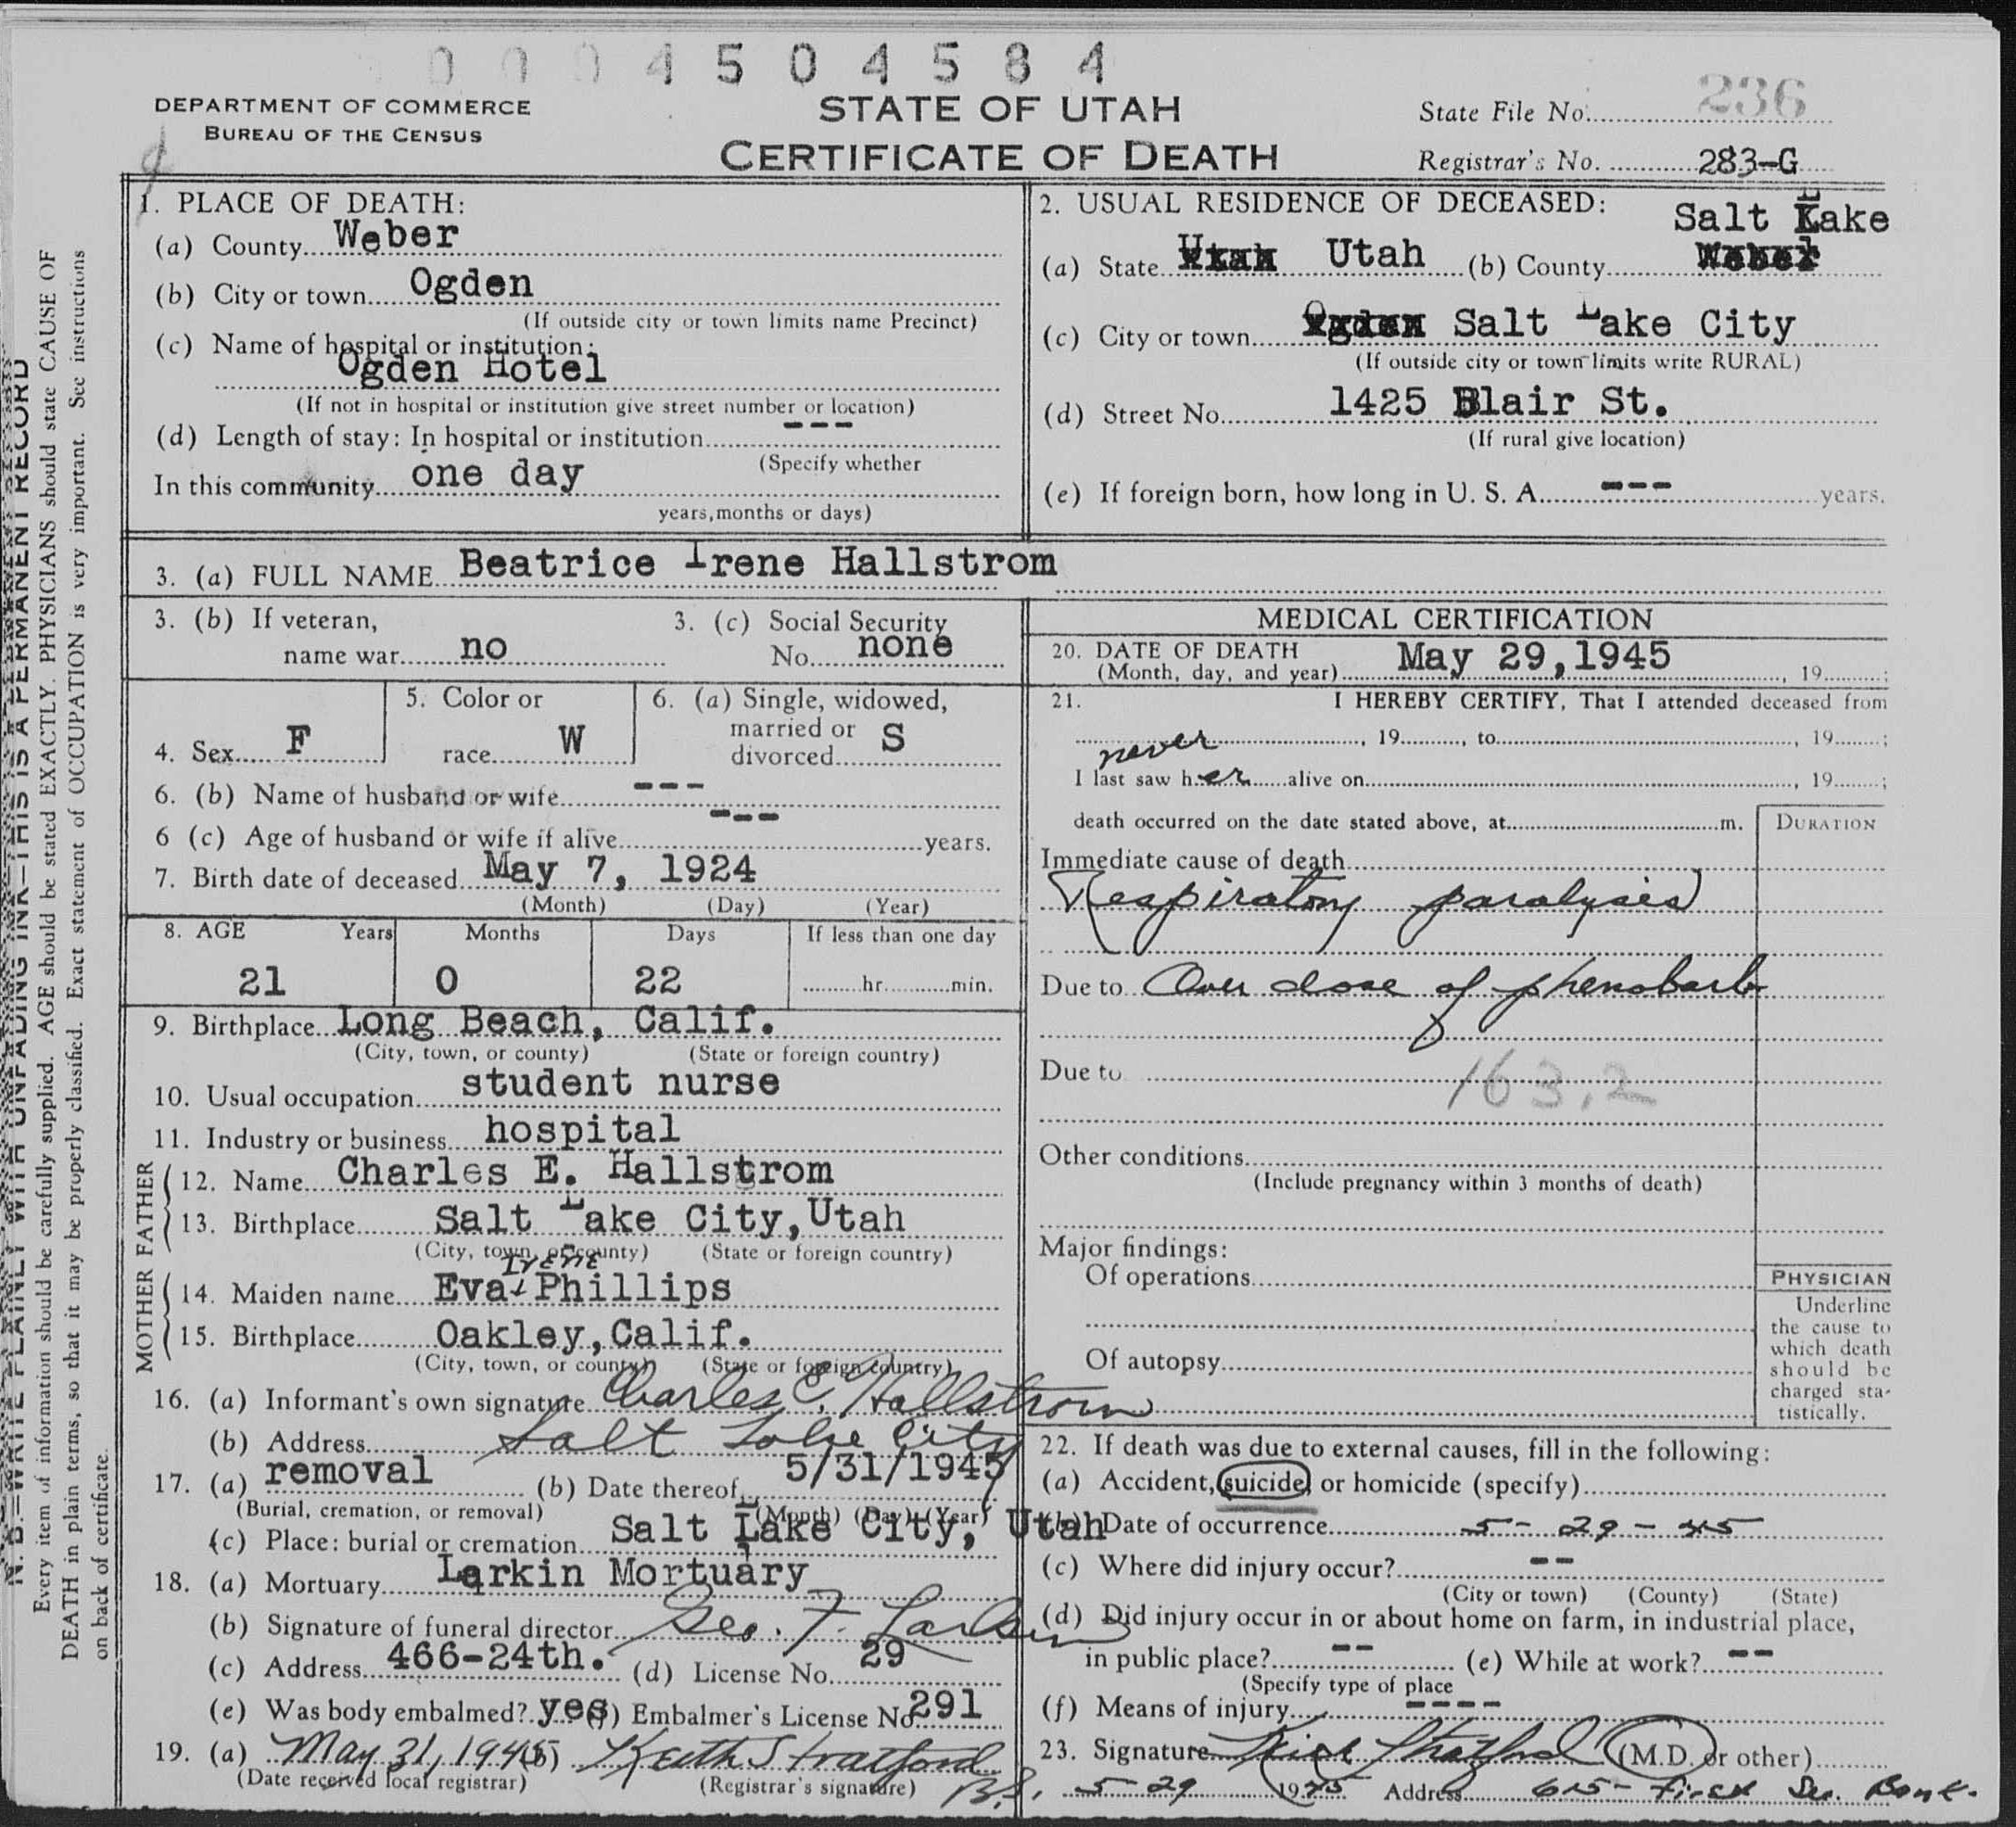 0 0 0 4 5 0 4 5 8 4
DEPARTMENT OF COMMERCE
BUREAU OF THE CENSUS
STATE OF UTAH
CERTIFICATE OF DEATH
State File No. 236
Registrar's No. 283-G
1. PLACE OF DEATH:
(a) County Weber
(b) City or town Ogden
(If outside city or town limits name Precinct)
(c) Name of hospital or institution:
Ogden Hotel
(If not in hospital or institution give street number or location)
(d) Length of stay: In hospital or institution ---
(Specify whether
In this community one day
years, months or days)
2. USUAL RESIDENCE OF DECEASED:
Salt Lake
(a) State Utah Utah (b) County Weber
(c) City or town Ogden Salt Lake City
(If outside city or town limits write RURAL)
(d) Street No. 1425 Blair St.
(If rural give location)
(e) If foreign born, how long in U. S. A. --- years.
3. (a) FULL NAME Beatrice Irene Hallstrom
3. (b) If veteran,
name war no
3. (c) Social Security
No. none
4. Sex F
5. Color or
race W
6. (a) Single, widowed,
married or
divorced S
6. (b) Name of husband or wife ---
6 (c) Age of husband or wife if alive --- years.
7. Birth date of deceased May 7, 1924
(Month) (Day) (Year)
8. AGE Years Months Days If less than one day
21 0 22 hr. min.
9. Birthplace Long Beach, Calif.
(City, town, or county) (State or foreign country)
10. Usual occupation student nurse
11. Industry or business hospital
FATHER
12. Name Charles E. Hallstrom
13. Birthplace Salt Lake City, Utah
(City, town, or county) (State or foreign country)
MOTHER
Irene
14. Maiden name Eva Phillips
15. Birthplace Oakley, Calif.
(City, town, or county) (State or foreign country)
16. (a) Informant's own signature Charles E. Hallstrom
(b) Address Salt Lake City
17. (a) removal (b) Date thereof 5/31/1945
(Burial, cremation, or removal) (Month) (Day) (Year)
(c) Place: burial or cremation Salt Lake City, Utah
18. (a) Mortuary Larkin Mortuary
(b) Signature of funeral director Geo. F. Larkin
(c) Address 466-24th. (d) License No. 29
(e) Was body embalmed? yes (f) Embalmer's License No. 291
19. (a) May 31, 1945 (b) Keith Stratford
(Date received local registrar) (Registrar's signature) B.S.
MEDICAL CERTIFICATION
20. DATE OF DEATH
(Month, day, and year) May 29, 1945, 19 ;
21. I HEREBY CERTIFY, That I attended deceased from
never , 19 , to , 19 ;
I last saw her alive on , 19 ;
death occurred on the date stated above, at m.
DURATION
Immediate cause of death
Respiratory paralysis
Due to Over dose of phenobarb
Due to
163.2
Other conditions
(Include pregnancy within 3 months of death)
Major findings:
Of operations
Of autopsy
PHYSICIAN
Underline
the cause to
which death
should be
charged sta-
tistically.
22. If death was due to external causes, fill in the following:
(a) Accident, suicide, or homicide (specify)
(b) Date of occurrence 5-29-45
(c) Where did injury occur? --
(City or town) (County) (State)
(d) Did injury occur in or about home on farm, in industrial place,
in public place? -- (e) While at work? --
(Specify type of place
(f) Means of injury ----
23. Signature (M.D. or other)
5-29 1945 Address 615- First Sec. Bank.
N. B.—WRITE PLAINLY WITH UNFADING INK—THIS IS A PERMANENT RECORD
Every item of information should be carefully supplied. AGE should be stated EXACTLY. PHYSICIANS should state CAUSE OF
DEATH in plain terms, so that it may be properly classified. Exact statement of OCCUPATION is very important. See instructions
on back of certificate.